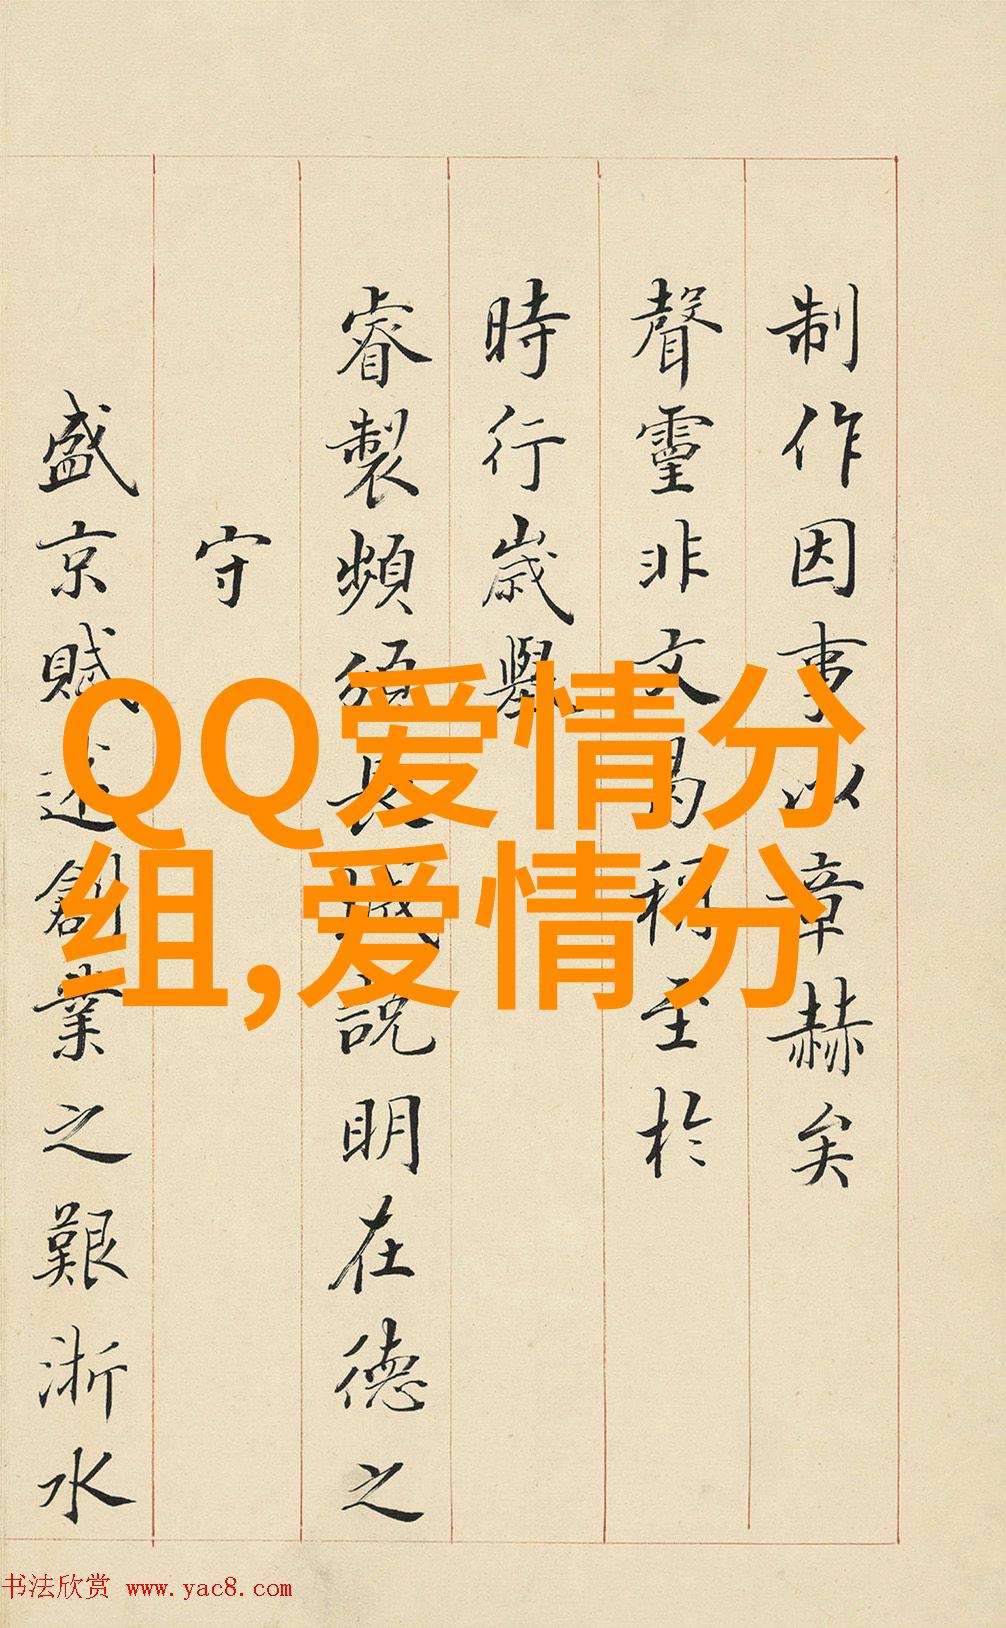 制作因事以章赫矣
聲靈非文曷稱至於
時行歲舉
睿製頻頒長城說明在德之
守
盛京賦述創業之艱浙水
QQ爱情分
组,爱情分
书法欣赏 www.yac8.com